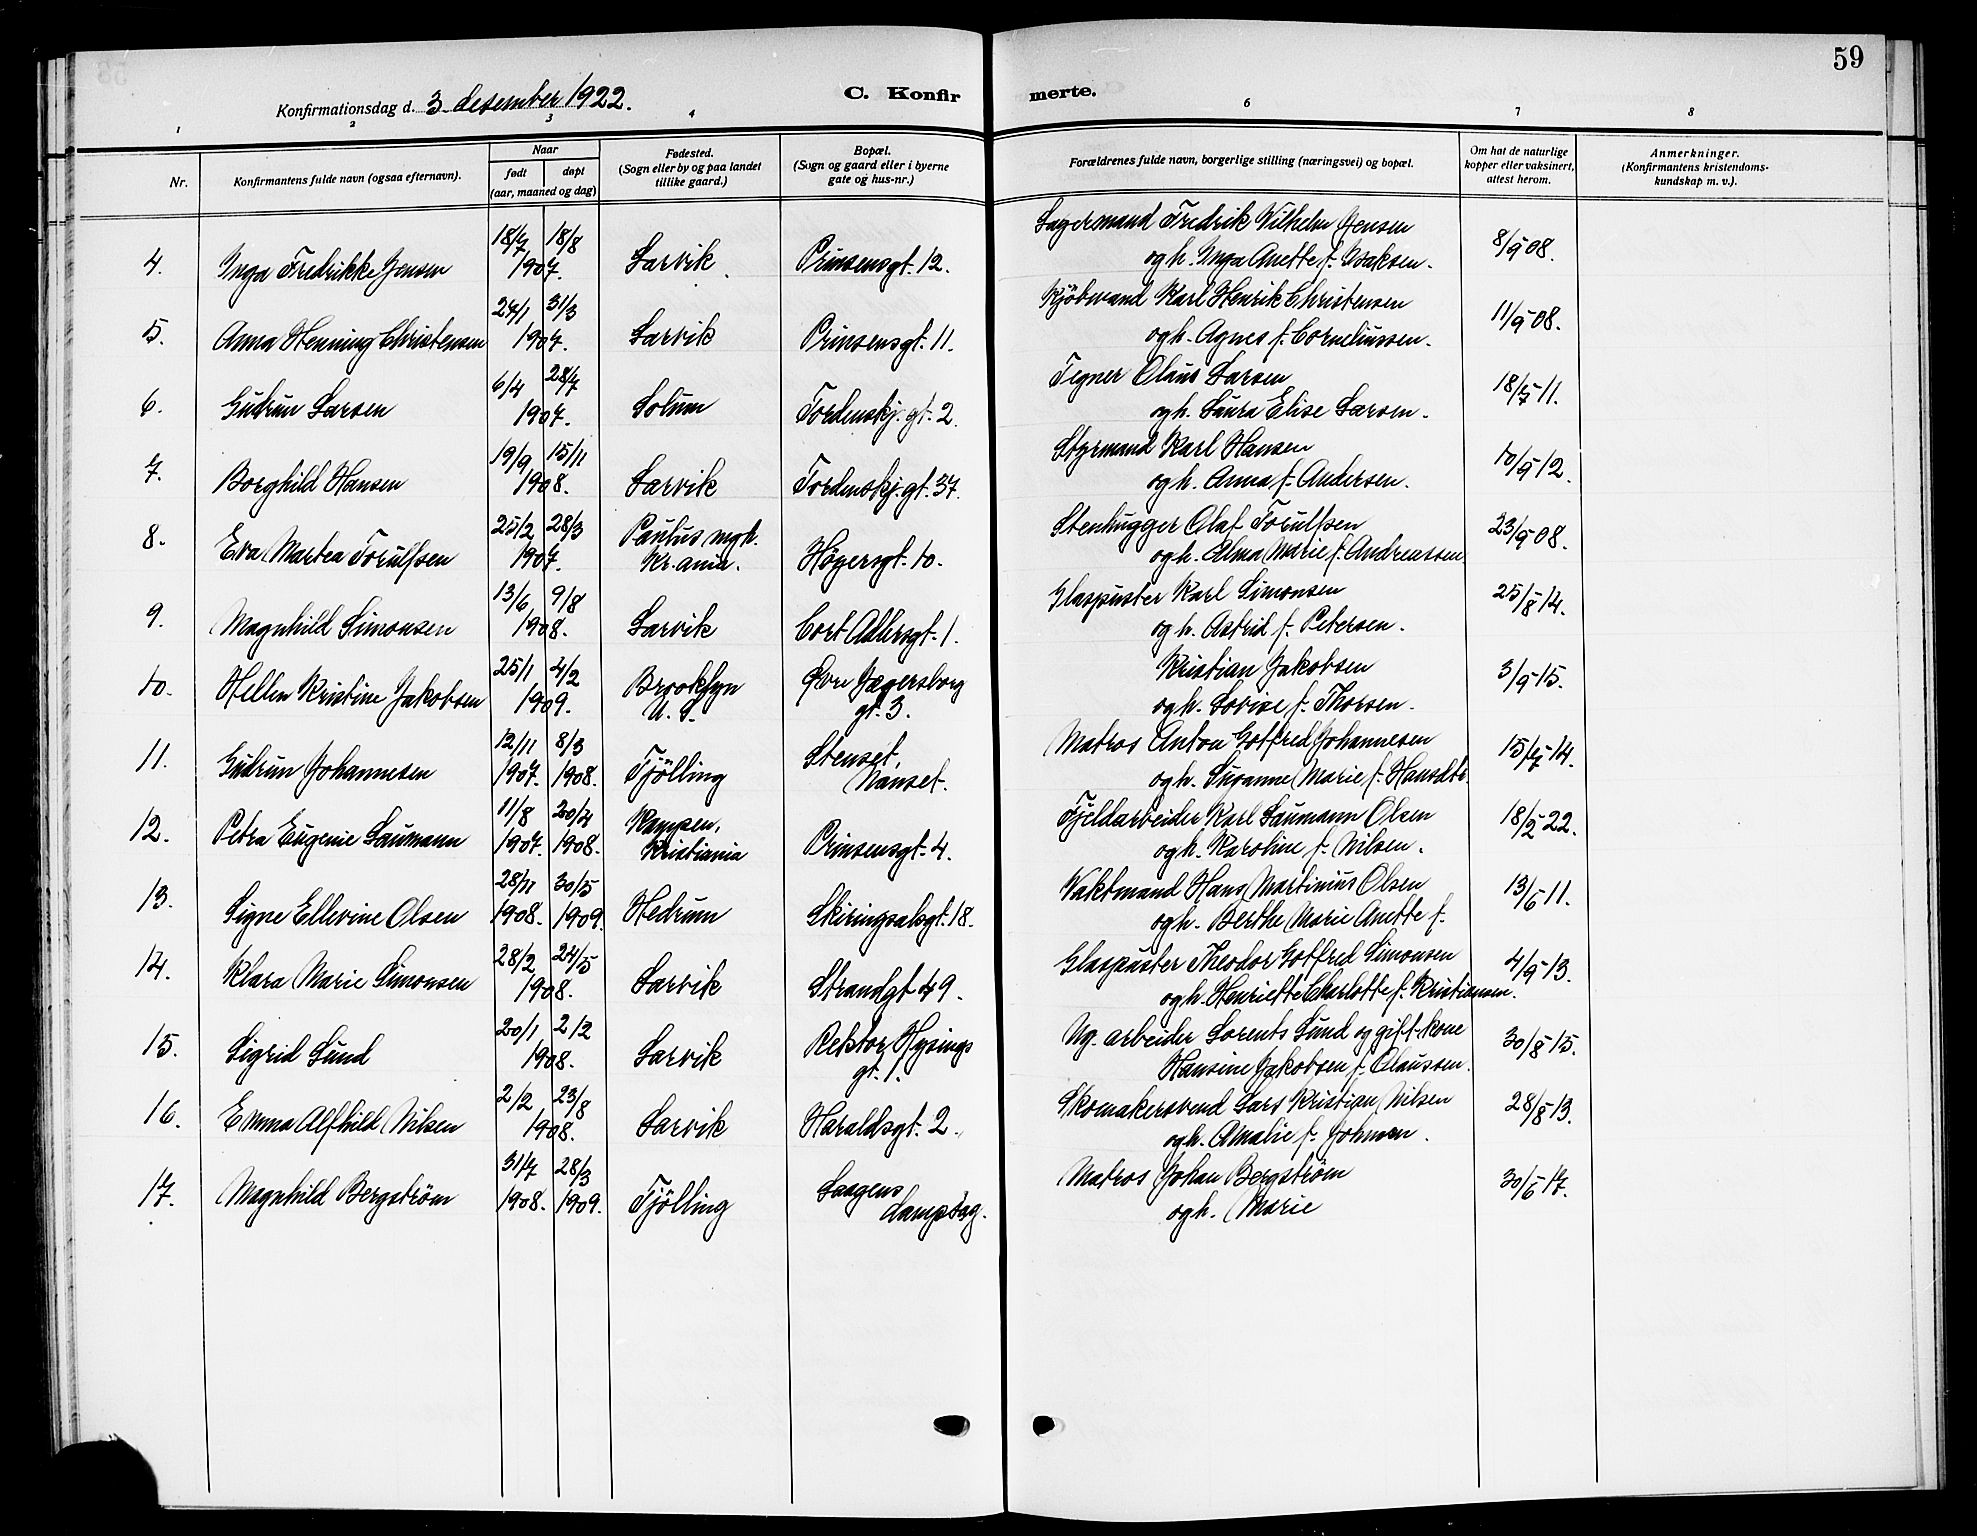 59
Konfirmationsdag d. 3. desember 1922.
C. Konfirmerte.
1 2 3 4 6 7 8
Nr.
Konfirmantens fulde navn (ogsaa efternavn).
Naar
født døpt
(aar, maaned og dag)
Fødested.
(Sogn eller by og paa landet
tillike gaard.)
Bopæl.
(Sogn og gaard eller i byerne
gate og hus-nr.)
Forældrenes fulde navn, borgerlige stilling (næringsvei) og bopæl.
Om hat de naturlige
kopper eller vaksinert,
attest herom.
Anmerkninger.
(Konfirmantens kristendoms-
kundskap m. v.).
18/7 18/8 Lagermand Fredrik Wilhelm Jensen
4. Inga Fredrikke Jensen 1907. Larvik Prinsensgt. 12. og h. Inga Anette f. Isaksen. 8/5 08.
24/1 31/3 Kjöbmand Karl Henrik Christensen
5. Anna Henning Christensen 1907. Larvik Prinsensgt. 11. og h. Agnes f. Corneliussen. 11/5 08.
6/4 28/7 Tegner Olaus Larsen
6. Gudrun Larsen 1907. Solum Tordenskj. gt. 2. og h. Laura Elise Larsen. 18/7 11.
19/9 15/11 Styrmand Karl Hansen
7. Borghild Hansen 1908. Larvik Tordenskj. gt. 37. og h. Anna f. Andersen. 10/5 12.
25/2 28/3 Paulus mgh. Stenhugger Olaf Torulfsen
8. Eva Martea Torulfsen 1907. Kr.ania. Høyersgt. 10. og h. Alma Marie f. Andreassen 23/5 08.
13/6 9/8 Glaspuster Karl Simonsen
9. Magnhild Simonsen 1908. Larvik Cort Adlersgt. 1. og h. Astrid f. Petersen. 25/8 14.
25/1 4/2 Brooklyn Øvre Jægersborg Kristian Jakobsen
10. Hellen Kristine Jakobsen 1909. U. S. gt. 3. og h. Lovise f. Thorsen. 3/5 15.
12/11 8/3 Stenset, Matros Anton Gotfred Johannesen
11. Gudrun Johannesen 1907. 1908. Tjölling Nanset. og h. Susanne Marie f. Hansdtr. 15/7 14.
11/8 20/4 Kampen, Fjeldarbeider Karl Laumann Olsen
12. Petra Eugenie Laumann 1907. 1908. Kristiania Prinsensgt. 4. og h. Karoline f. Nilsen. 18/2 22.
28/11 30/5 Vaktmand Hans Martinius Olsen
13. Signe Ellevine Olsen 1908. 1909. Hedrum Skiringsalsgt. 18. og h. Berthe Marie Anette f. 13/6 11.
28/2 24/5 Glaspuster Theodor Gotfred Simonsen
14. Klara Marie Simonsen 1908. Larvik Strandgt 49. og h. Henriette Charlotte f. Kristiansen. 4/5 13.
20/1 2/2 Rektor Hysings Ug. arbeider Lorents Lund og gift kone
15. Sigrid Lund 1908. Larvik gt. 1. Hansine Jakobsen f. Olaussen. 30/8 15.
2/2 23/8 Skomakersvend Lars Kristian Nilsen
16. Emma Alfhild Nilsen 1908. Larvik Haraldsgt. 2. og h. Amalie f. Johnsen. 28/8 13.
31/7 28/3 Laagens Matros Johan Bergström
17. Magnhild Bergström 1908. 1909. Tjölling dampsag. og h. Marie 30/6 17.